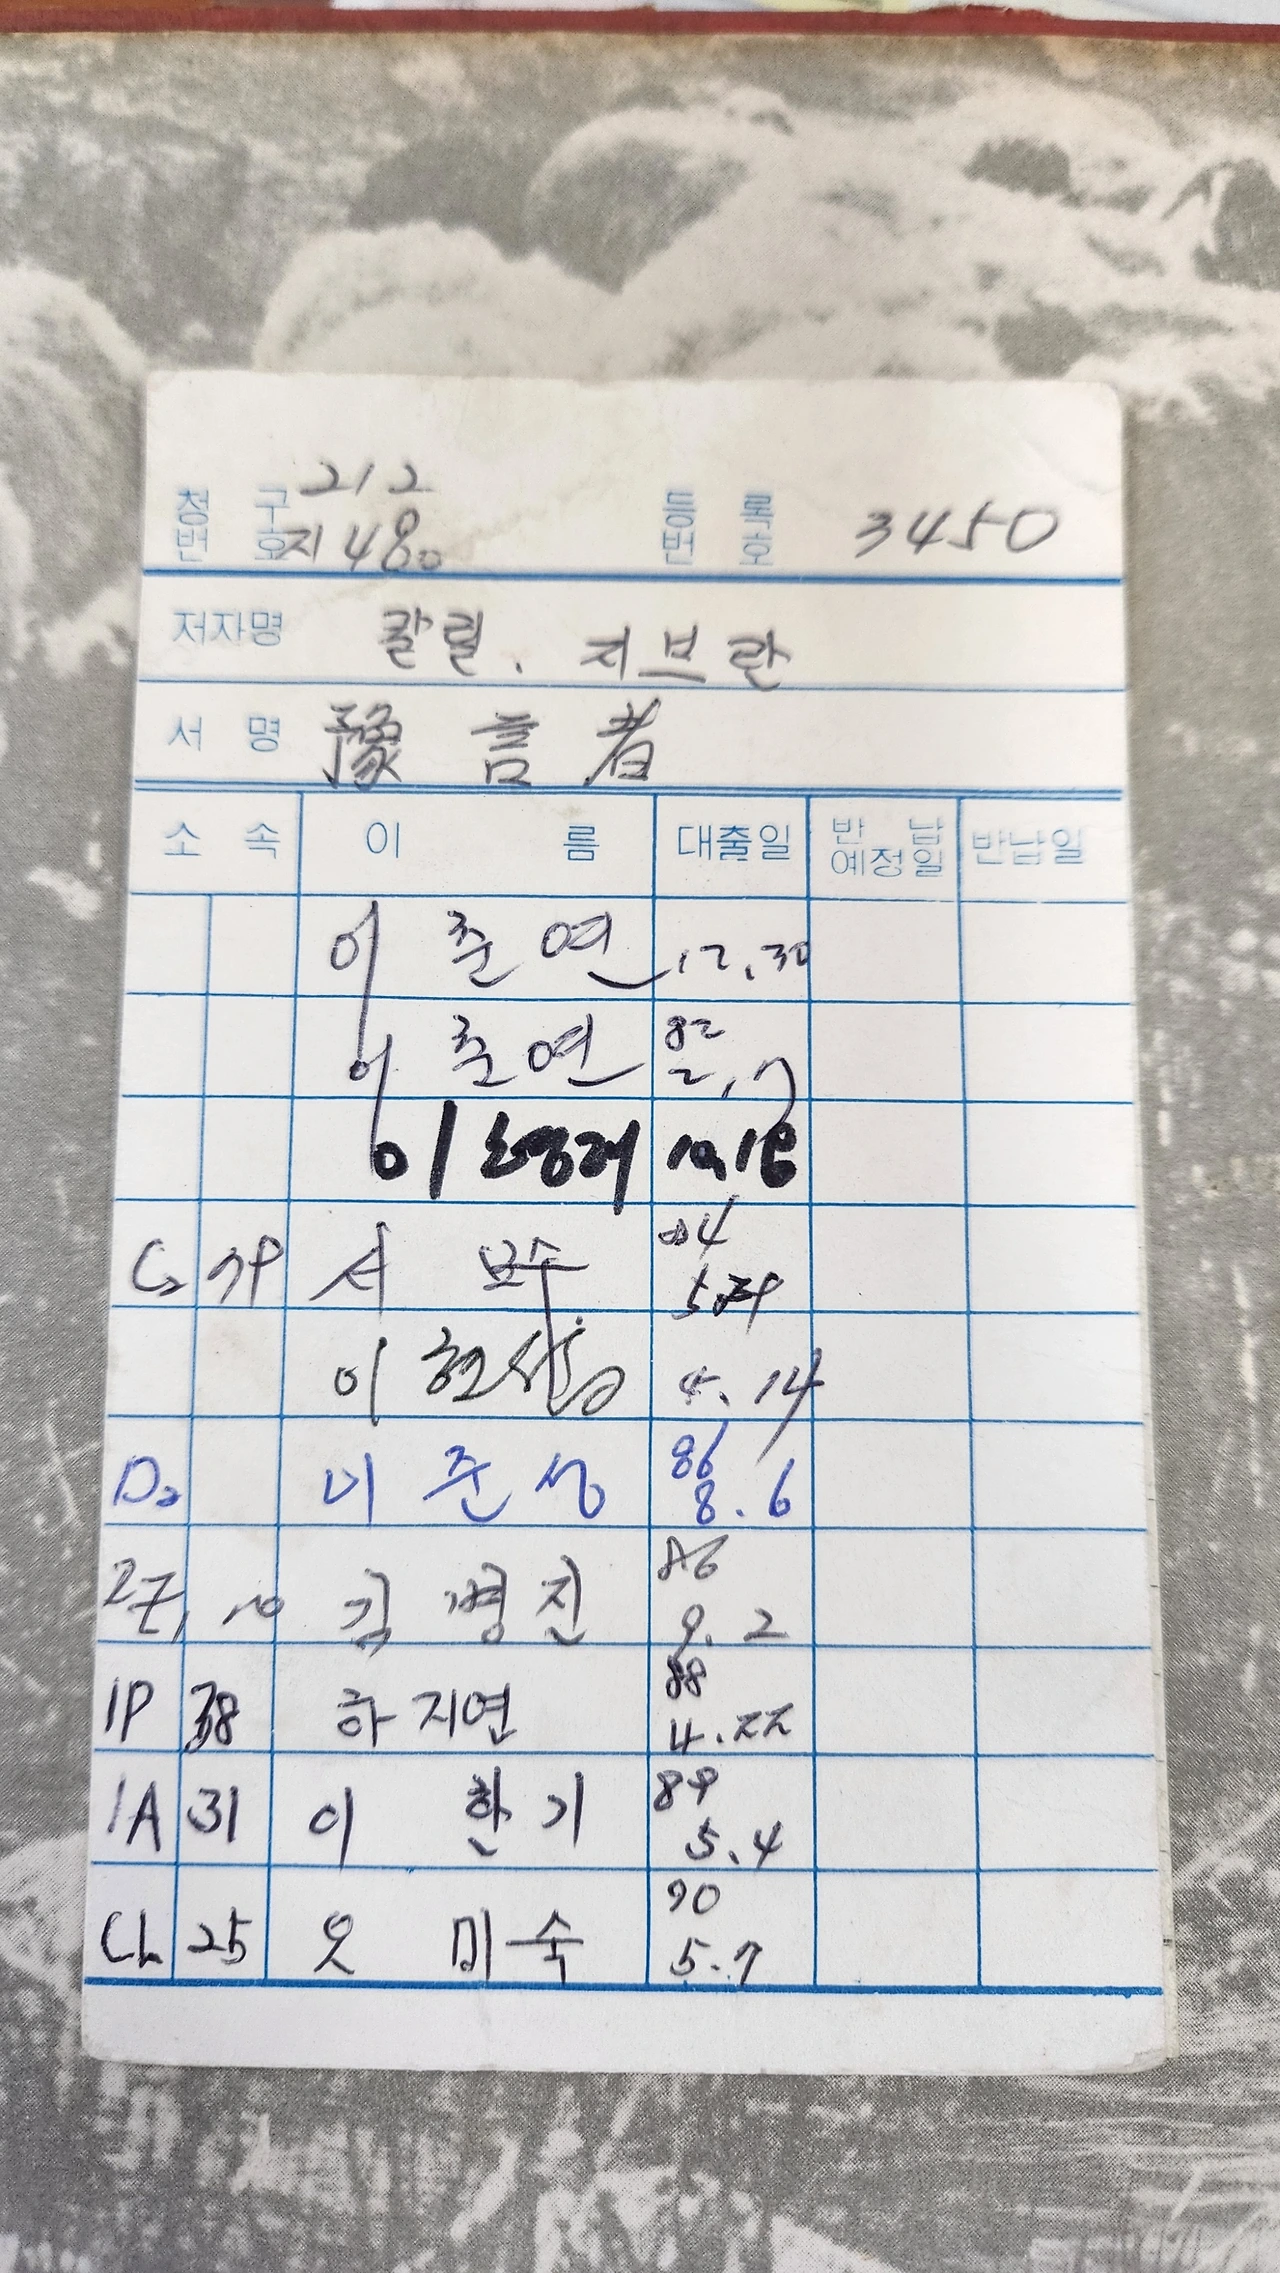 212
청구 번호 지48ㅇ 등록 번호 3450
저자명 칼릴. 지브란
서 명 豫言者
소 속 이 름 대출일 반납 예정일 반납일
이 준 연 12.30
이 준 연 82 2.7
이
서 보수 84
이 현 4.14
D2 이 준 성 86 8.6
김 병 진 86 9.2
1P 38 하지연 88 4.22
1A 31 이 한 기 89 5.4
25 오 미 숙 90 5.7